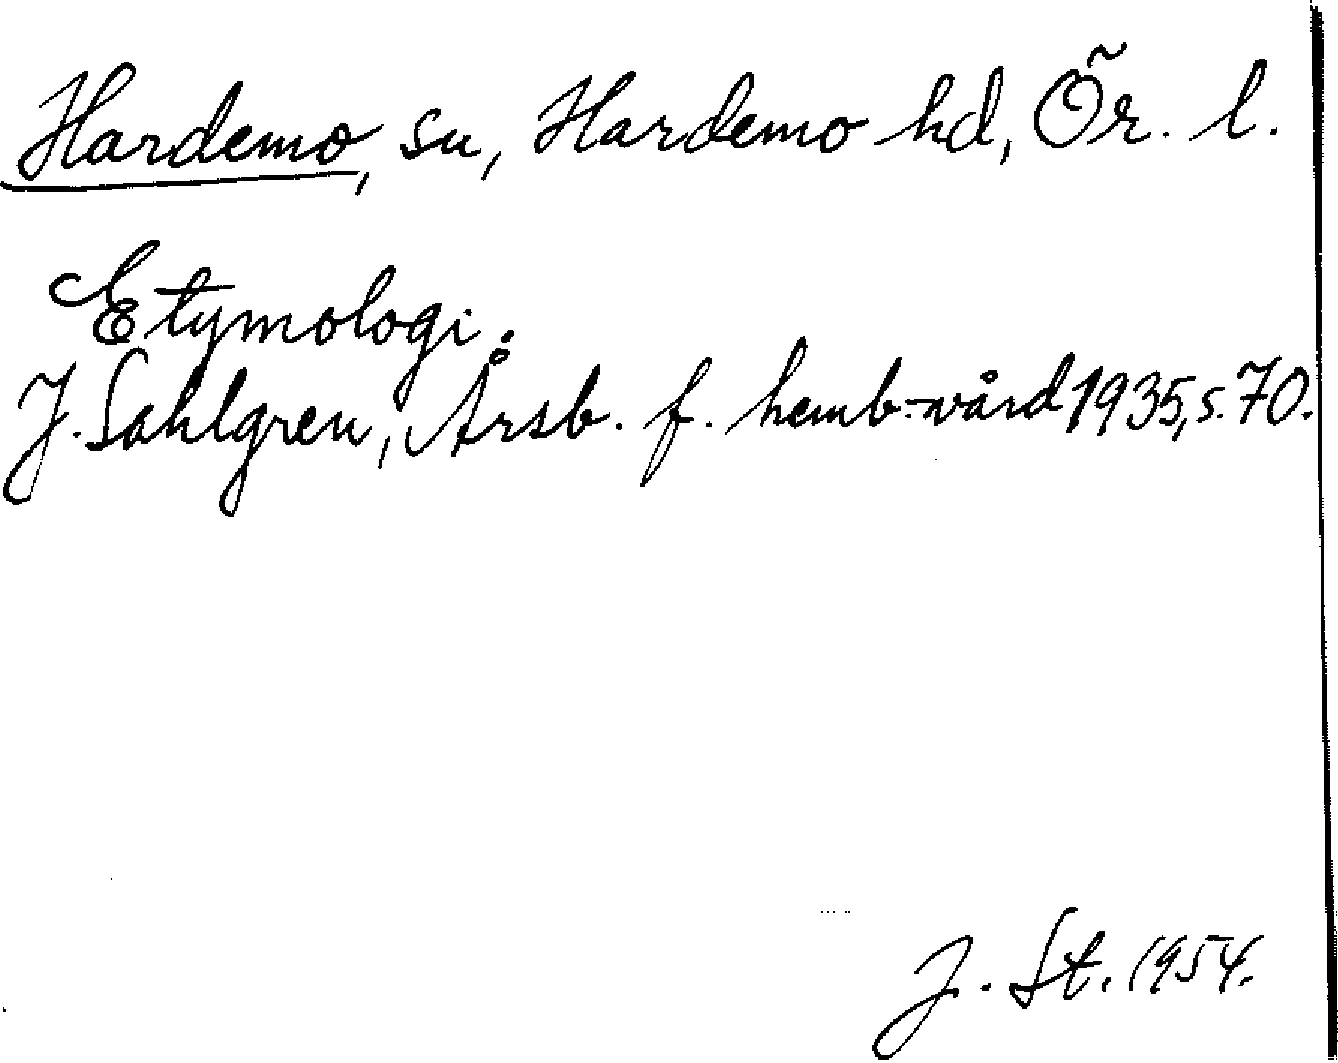 Hardemo, sn, Hardemo hd, Ör. l.
Etymologi:
J. Sahlgren, Årsb. f. hemb.-vård 1935, s. 70.
J. St. 1954.